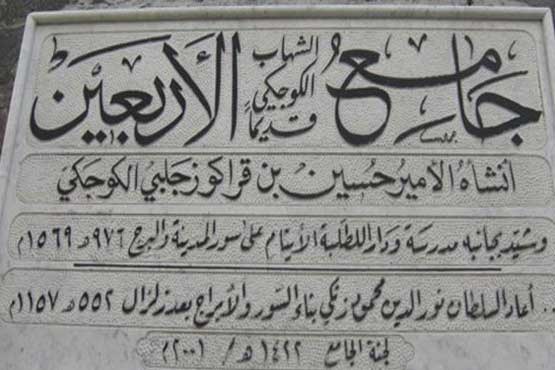 جامع الأربعين
الشهاب
الكوجكي
قديماً
أنشأه الأمير حسين بن قراكوز جلبي الكوجكي
وشيّد بجانبه مدرسة ودار للطلبة الأيتام على سور المدينة والبرج ٩٧٦هـ ١٥٦٩م
أعاد السلطان نور الدين محمود زنكي بناء السور والأبراج بعد زلزال ٥٥٢هـ ١١٥٧م
لجنة الجامع ١٤٢٢هـ / ٢٠٠١م